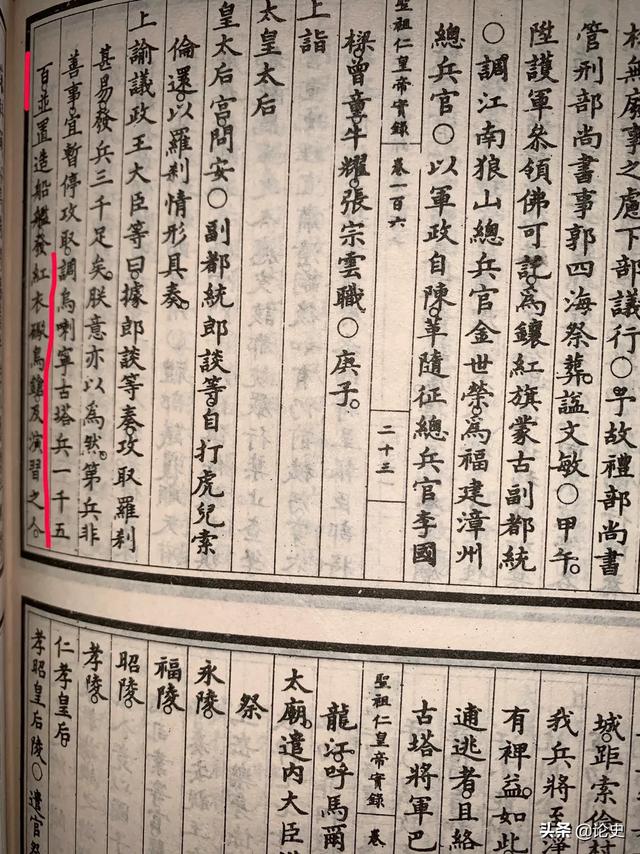 管刑部尚書事郭四海祭葬。諡文敏○甲午。
陞護軍叅領佛可託。為鑲紅旗蒙古副都統
○調江南狼山總兵官金世榮。為福建漳州
總兵官○以軍政自陳。革隨征總兵官李國
聖祖仁皇帝實錄 卷一百六 二十三
樑曾童牛耀。張宗雲職○庚子。
上詣
太皇太后
皇太后宮問安○副都統郎談等。自打虎兒索
倫還。以羅刹情形具奏。
上諭議政王大臣等曰。據郎談等奏攻取羅刹
甚易。發兵三千足矣。朕意亦以為然。第兵非
善事。宜暫停攻取。調烏喇寧古塔兵一千五
百。並置造船艦。發紅衣礮鳥鎗及演習之人
城。距索倫村
我兵將至淨
有裨益。如此
逋逃者。且絡
古塔將軍巴
聖祖仁皇帝實錄 卷
龍江呼馬爾
太廟。遣內大臣
祭
永陵。
福陵。
昭陵。
孝陵。
仁孝皇后。
孝昭皇后陵。○遣官祭
头条 @论史